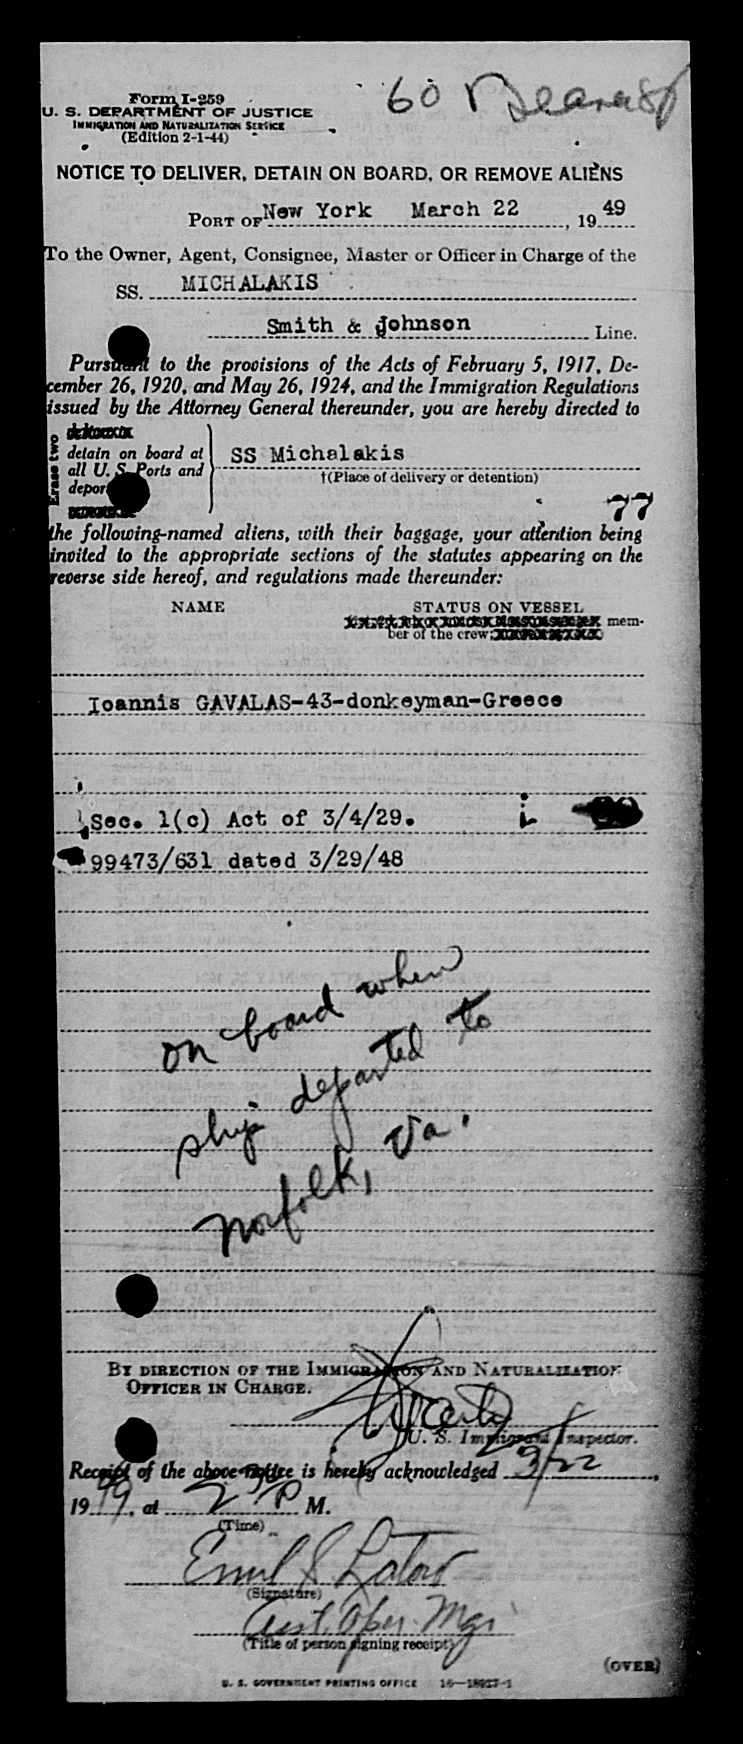 60 
Form I-259
U. S. DEPARTMENT OF JUSTICE
IMMIGRATION AND NATURALIZATION SERVICE
(Edition 2-1-44)
NOTICE TO DELIVER, DETAIN ON BOARD, OR REMOVE ALIENS
PORT OF New York March 22, 1949
To the Owner, Agent, Consignee, Master or Officer in Charge of the
SS. MICHALAKIS
Smith & Johnson Line.
Pursuant to the provisions of the Acts of February 5, 1917, De-
cember 26, 1920, and May 26, 1924, and the Immigration Regulations
issued by the Attorney General thereunder, you are hereby directed to
Erase two
detain on board at
all U. S. Ports and
depor
SS Michalakis
†(Place of delivery or detention)
77
the following-named aliens, with their baggage, your attention being
invited to the appropriate sections of the statutes appearing on the
reverse side hereof, and regulations made thereunder:
NAME STATUS ON VESSEL
mem-
ber of the crew;
Ioannis GAVALAS-43-donkeyman-Greece
Sec. 1(c) Act of 3/4/29. i
99473/631 dated 3/29/48
on board when
ship departed to
Norfolk, Va.
BY DIRECTION OF THE IMMIGRATION AND NATURALIZATION
OFFICER IN CHARGE.
U. S. Immigrant Inspector.
Receipt of the above notice is hereby acknowledged 3/22,
1949, at 2 30 P M.
(Time)
Emil S
(Signature)
Asst. Oper. Mgr.
(Title of person signing receipt)
(OVER)
U. S. GOVERNMENT PRINTING OFFICE 16—18927-1